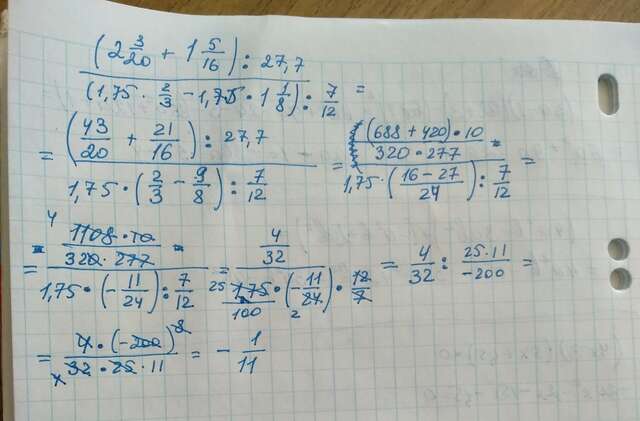 (2 3/20 + 1 5/16) : 27,7
(1,75 · 2/3 − 1,75 · 1 1/8) : 7/12 =
= (43/20 + 21/16) : 27,7
1,75 · (2/3 − 9/8) : 7/12
= (688 + 420) · 10
320 · 277
1,75 · (16 − 27 / 24) : 7/12 =
= 4 1108 · 10
320 · 277
1,75 · (− 11/24) : 7/12
= 4/32
25 175/100 · (− 11/24 2) · 12/7
= 4/32 : 25 · 11 / −200 =
= 4 · (−200) 8
32 · 25 · 11
= − 1/11